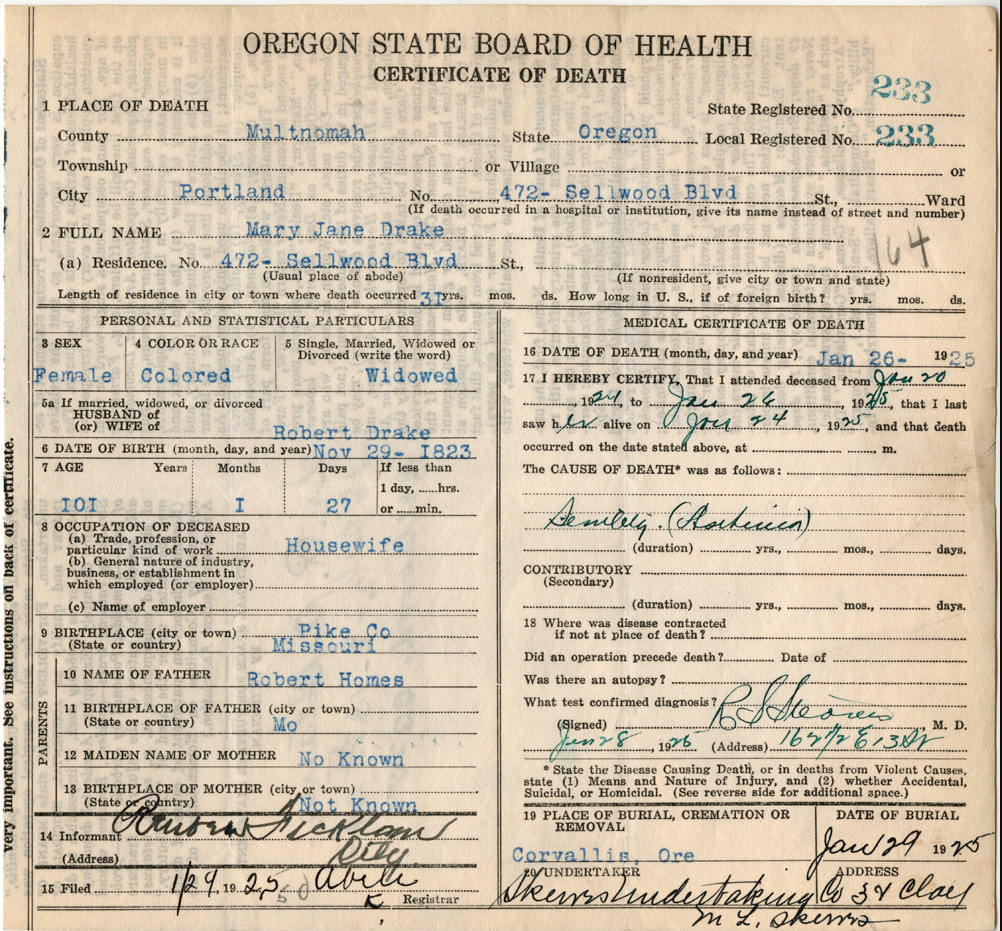 OREGON STATE BOARD OF HEALTH
CERTIFICATE OF DEATH
1 PLACE OF DEATH
State Registered No. 233
County Multnomah State Oregon Local Registered No. 233
Township or Village or
City Portland No. 472- Sellwood Blvd St., Ward
(If death occurred in a hospital or institution, give its name instead of street and number)
2 FULL NAME Mary Jane Drake
164
(a) Residence. No. 472- Sellwood Blvd St.,
(Usual place of abode) (If nonresident, give city or town and state)
Length of residence in city or town where death occurred 3I yrs. mos. ds. How long in U. S., if of foreign birth? yrs. mos. ds.
PERSONAL AND STATISTICAL PARTICULARS
3 SEX
Female
4 COLOR OR RACE
Colored
5 Single, Married, Widowed or
Divorced (write the word)
Widowed
5a If married, widowed, or divorced
HUSBAND of
(or) WIFE of Robert Drake
6 DATE OF BIRTH (month, day, and year) Nov 29- I823
7 AGE Years Months Days If less than
1 day, ......hrs.
IOI I 27 or ......min.
8 OCCUPATION OF DECEASED
(a) Trade, profession, or
particular kind of work Housewife
(b) General nature of industry,
business, or establishment in
which employed (or employer)
(c) Name of employer
9 BIRTHPLACE (city or town) Pike Co
(State or country) Missouri
PARENTS
10 NAME OF FATHER Robert Homes
11 BIRTHPLACE OF FATHER (city or town)
(State or country) Mo
12 MAIDEN NAME OF MOTHER No Known
13 BIRTHPLACE OF MOTHER (city or town)
(State or country) Not Known
14 Informant
(Address) City
15 Filed 1/29, 1925
Registrar
MEDICAL CERTIFICATE OF DEATH
16 DATE OF DEATH (month, day, and year) Jan 26- 1925
17 I HEREBY CERTIFY, That I attended deceased from Jan 20
, 1924, to Jan 26, 1925, that I last
saw her alive on Jan 24, 1925, and that death
occurred on the date stated above, at m.
The CAUSE OF DEATH* was as follows:
(duration) yrs., mos., days.
CONTRIBUTORY
(Secondary)
(duration) yrs., mos., days.
18 Where was disease contracted
if not at place of death?
Did an operation precede death? Date of
Was there an autopsy?
What test confirmed diagnosis?
(Signed) R S Stearns M. D.
Jan 28, 1925 (Address) 162 1/2 E 13 St
* State the Disease Causing Death, or in deaths from Violent Causes,
state (1) Means and Nature of Injury, and (2) whether Accidental,
Suicidal, or Homicidal. (See reverse side for additional space.)
19 PLACE OF BURIAL, CREMATION OR
REMOVAL
Corvallis, Ore
DATE OF BURIAL
Jan 29 1925
20 UNDERTAKER
ADDRESS
Undertaking Co 3 & Clay
M L
very important. See instructions on back of certificate.